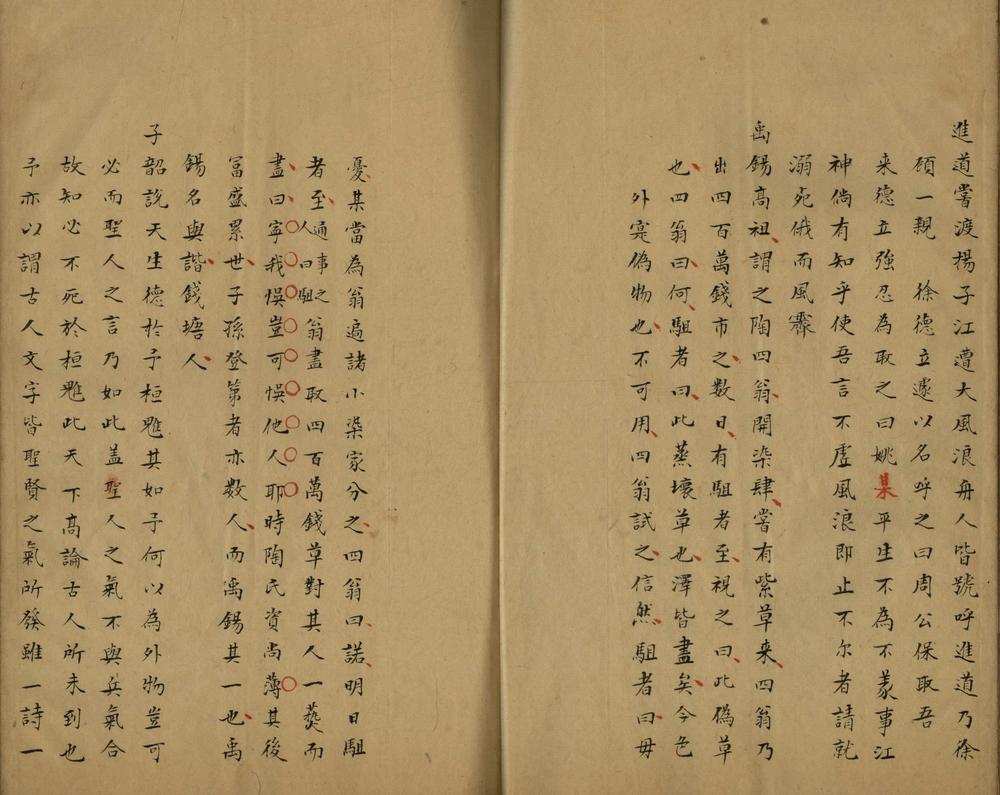 進道嘗渡楊子江遭大風浪舟人皆號呼進道乃徐
碩一親　徐德立遽以名呼之曰周公保取吾
来德立強忍為取之曰姚某平生不為不義事江
神倘有知乎使吾言不虛風浪即止不尔者請就
溺死俄而風霽
禹錫高祖謂之陶四翁開染肆嘗有紫草来四翁乃
出四百萬錢市之數日有駔者至視之曰此偽草
也四翁曰何駔者曰此蒸壞草也澤皆盡矣今色
外寔偽物也不可用四翁試之信然駔者曰毋
憂某當為翁遍諸小染家分之四翁曰諾明日駔
者至人曰駔通事之翁盡取四百萬錢草對其人一爇而
盡曰寧我悞豈可悞他人耶時陶氏資尚薄其後
冨盛累世子孫登第者亦数人而禹錫其一也禹
錫名與諧錢塘人
子韶說天生德於予桓魋其如予何以為外物豈可
必而聖人之言乃如此盖聖人之氣不與兵氣合
故知必不死於桓魋此天下髙論古人所未到也
予亦以謂古人文字皆聖賢之氣所發雖一詩一